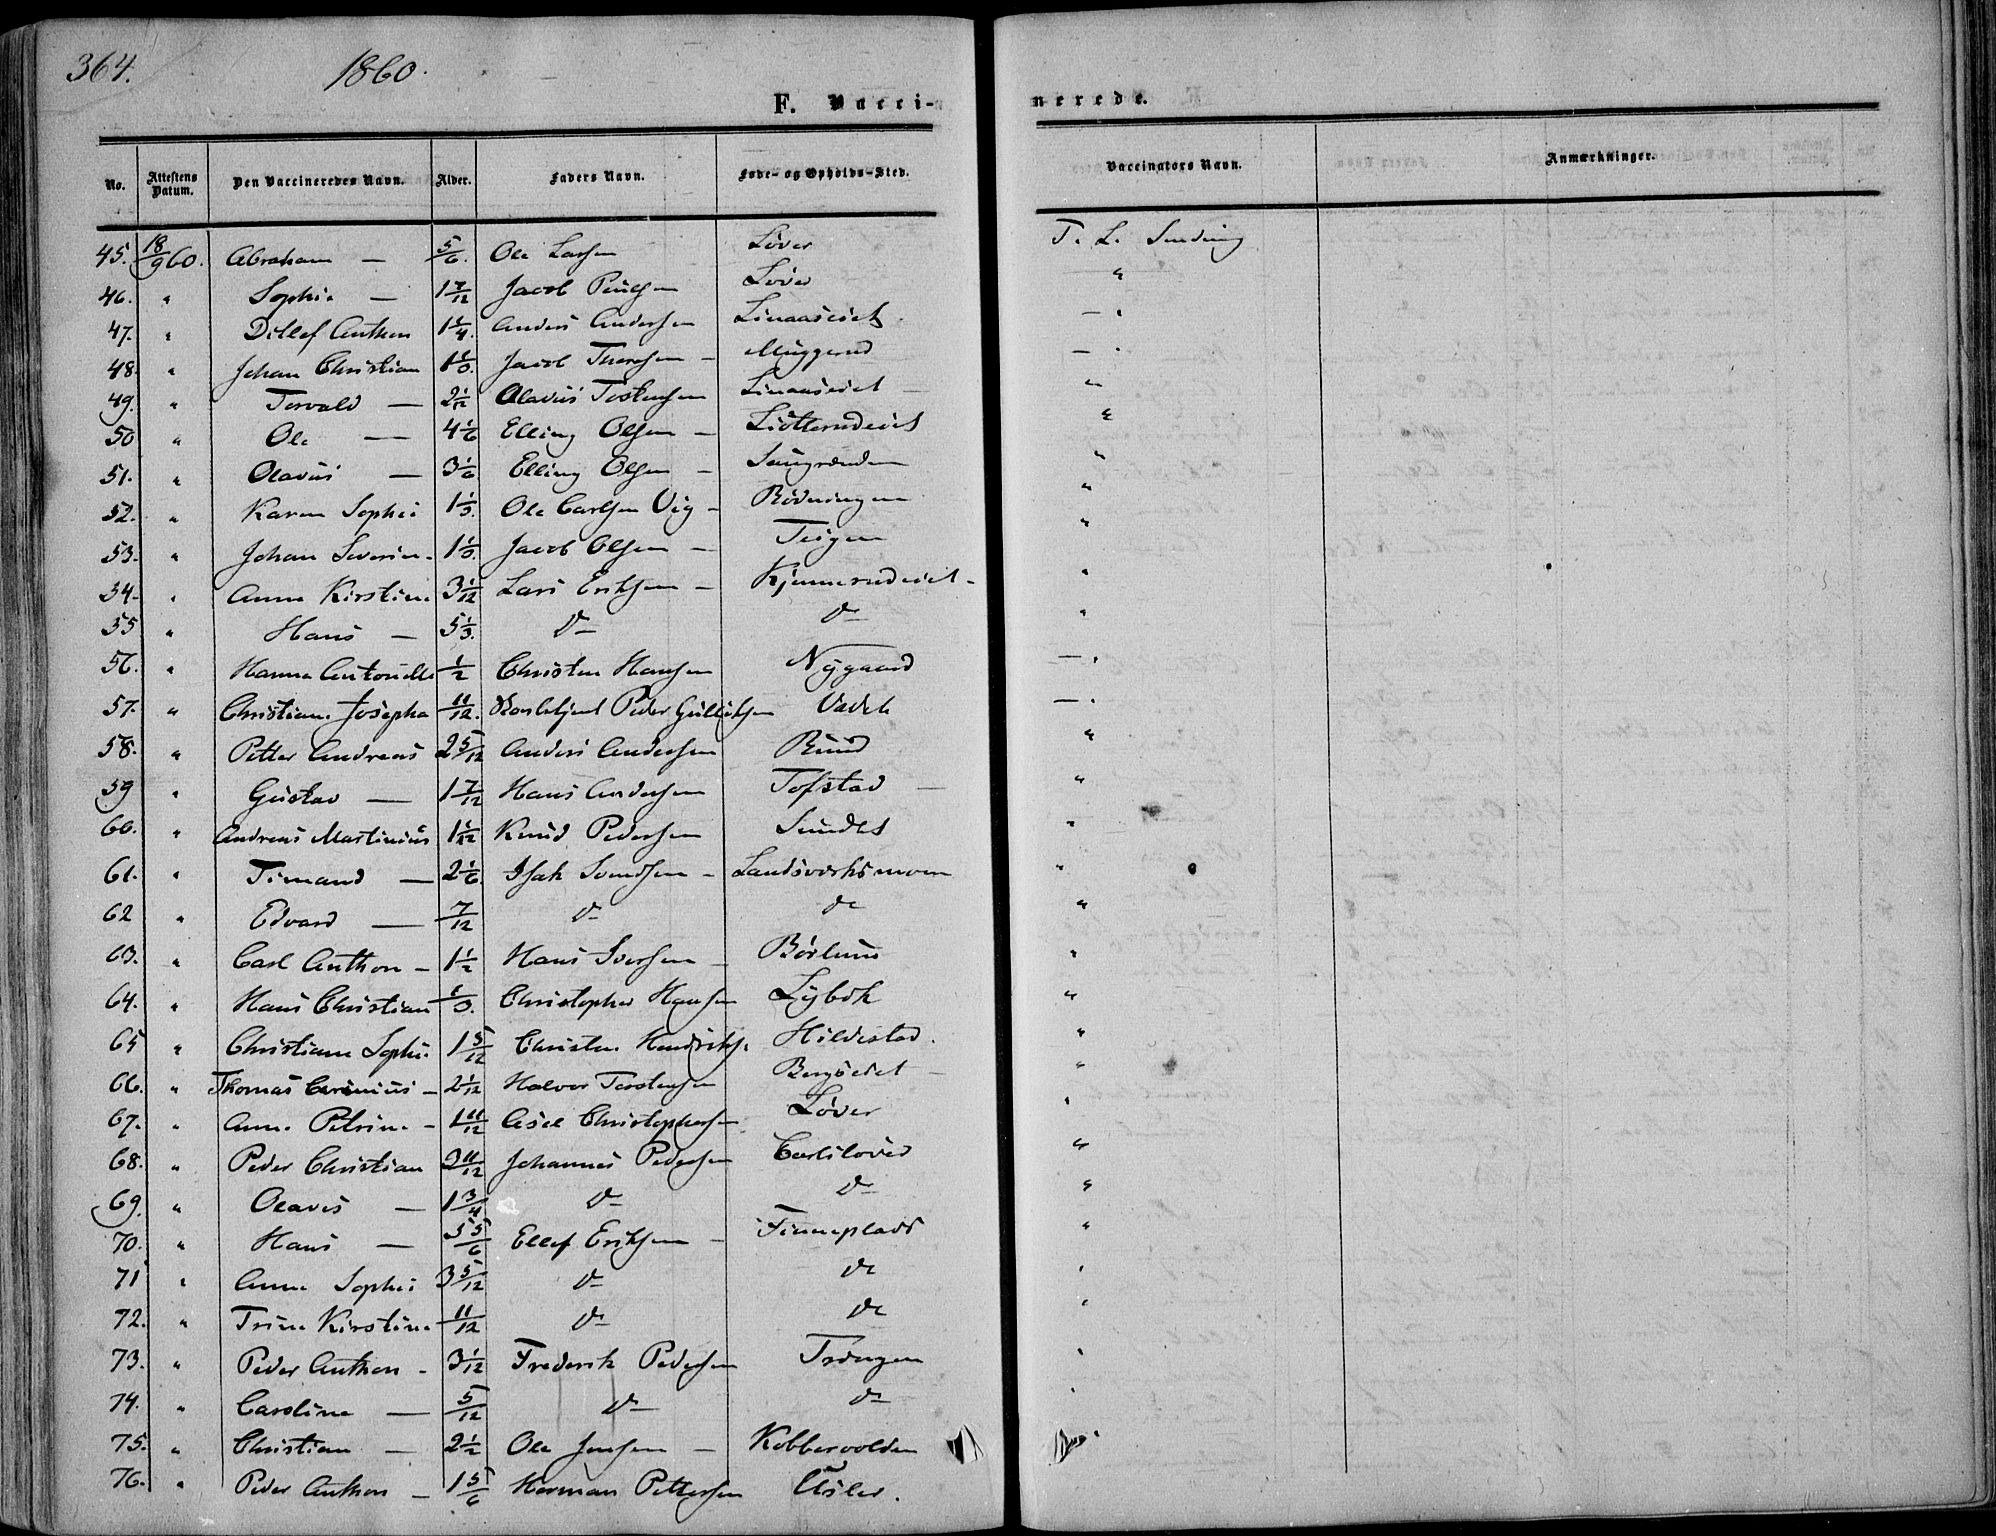 364. 1860.
F. Vaccinerede.
No. Attestens Datum. Den Vaccineredes Navn. Alder. Faders Navn. Føde- og Opholds-Sted. Vaccinators Navn. Anmærkninger.
45. 18/9 60. Abraham — 5/6. Ole Larsen Løver T. L.
46. " Sophie — 1 7/12 Jacob Løver "
47. " Ditlef Anthon 1 1/4. Anders Andersen — "
48. " Johan Christian 1 1/3. Jacob Thoresen — Muggerud — "
49. " Torvald — 2 1/12 Olavus Tostensen — "
50 " Ole — 4 1/6 Elling Olsen — "
51. " Olavus — 3 1/6 Elling Olsen — "
52. " Karen Sophie 1 1/3. Ole Carlsen Vig — Rødningen "
53. " Johan Severin - 1 1/3. Jacob Olsen — Teigen "
54. " Anne Kirstine 3 1/12 Lars Eriksen — Kjennerudeiet - "
55 " Hans — 5 1/3. D— D— "
56. " Hanna Antonette 1/2 Christen Hansen Nygaard — "
57. " Christiane Josepha 11/12. Peder Gulliksen Vadet — "
58. " Petter Andreas 2 5/12 Anders Andersen Ruud "
59 " Gustav — 1 7/12 Hans Andersen Tofstad — "
60. " Andreas Martinius 1 1/12 Knud Pedersen Sundet "
61. " Timand — 2 1/6. Isak Svendsen — Landsværksmoen "
62 " Edvard — 7/12 D— D— "
63. " Carl Anthon — 1 1/2 Hans Iversen — "
64. " Hans Christian 1/3. Christopher Hansen Lybæk "
65 " Christiane Sophie 1 5/12 Christen Hendriks. Hildestad. "
66. " Thomas — 2 1/12 Halvor Torstensen Bergseiet — "
67. " Anne Petrine — 1 11/12 Axel Christophersen Løver "
68. " Peder Christian 2 11/12 Johannes Pedersen "
69. " Olaves — 1 3/4 D— D— "
70. " Hans — 5 5/6 Ellef Eriksen — Finneplads "
71 " Anne Sophie 3 5/12 D— D— "
72. " Trine Kirstine 11/12 D— D— "
73. " Peder Anthon - 3 1/12 Frederik Pedersen Trongen "
74. " Caroline — 5/12 D— D— "
75. " Christian — 2 1/2 Ole Jensen — Kobbervolden "
76. " Peder Anthon — 1 5/6 Herman Pettersen Aslev.